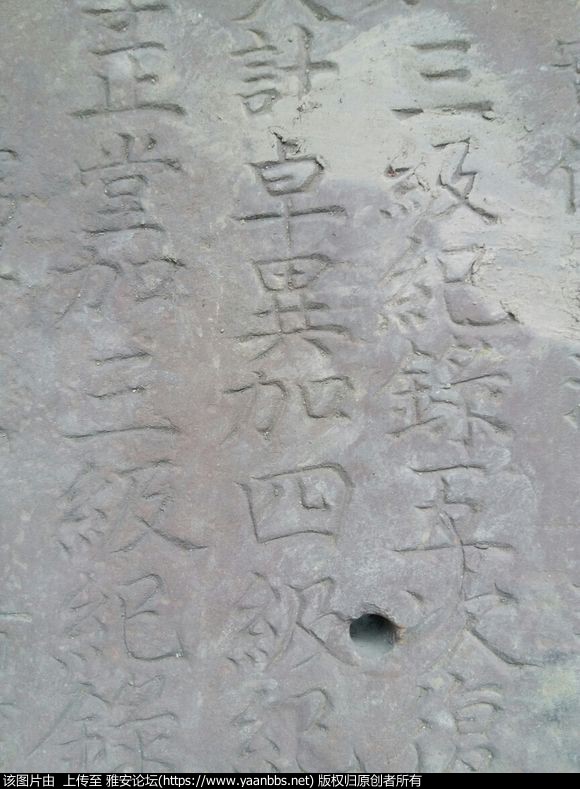 三級紀錄五次
計卓異加四級紀
正堂加三級紀錄
该图片由 上传至 雅安论坛(https://www.yaanbbs.net) 版权归原创者所有